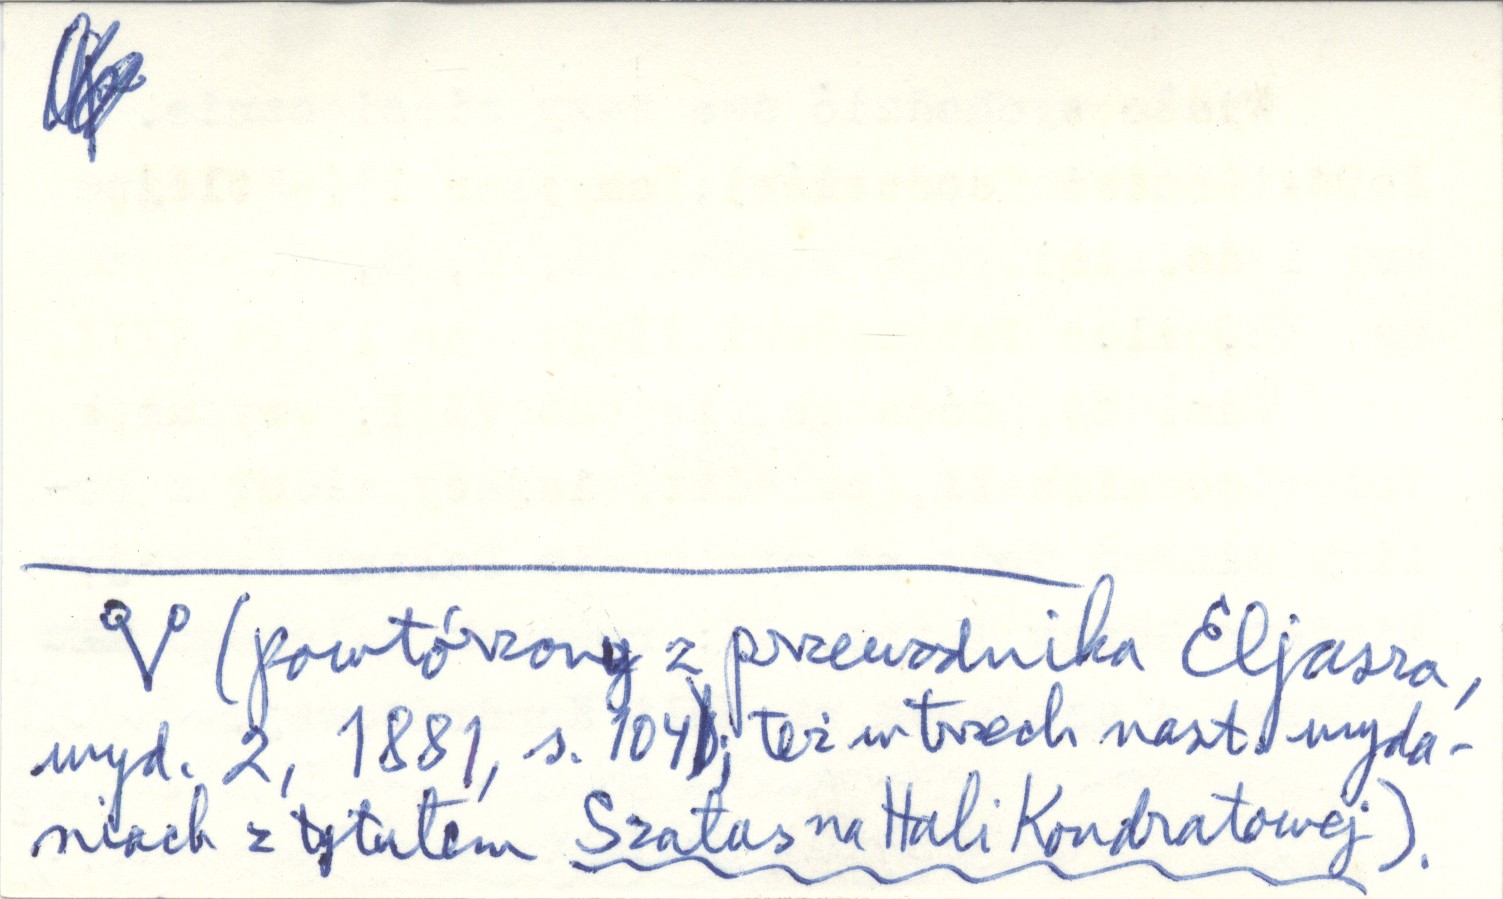 (powtórzony z przewodnika Eljasza,
wyd. 2, 1881, s. 104; też w trzech nast. wyda-
niach z tytułem Szałas na Hali Kondratowej).